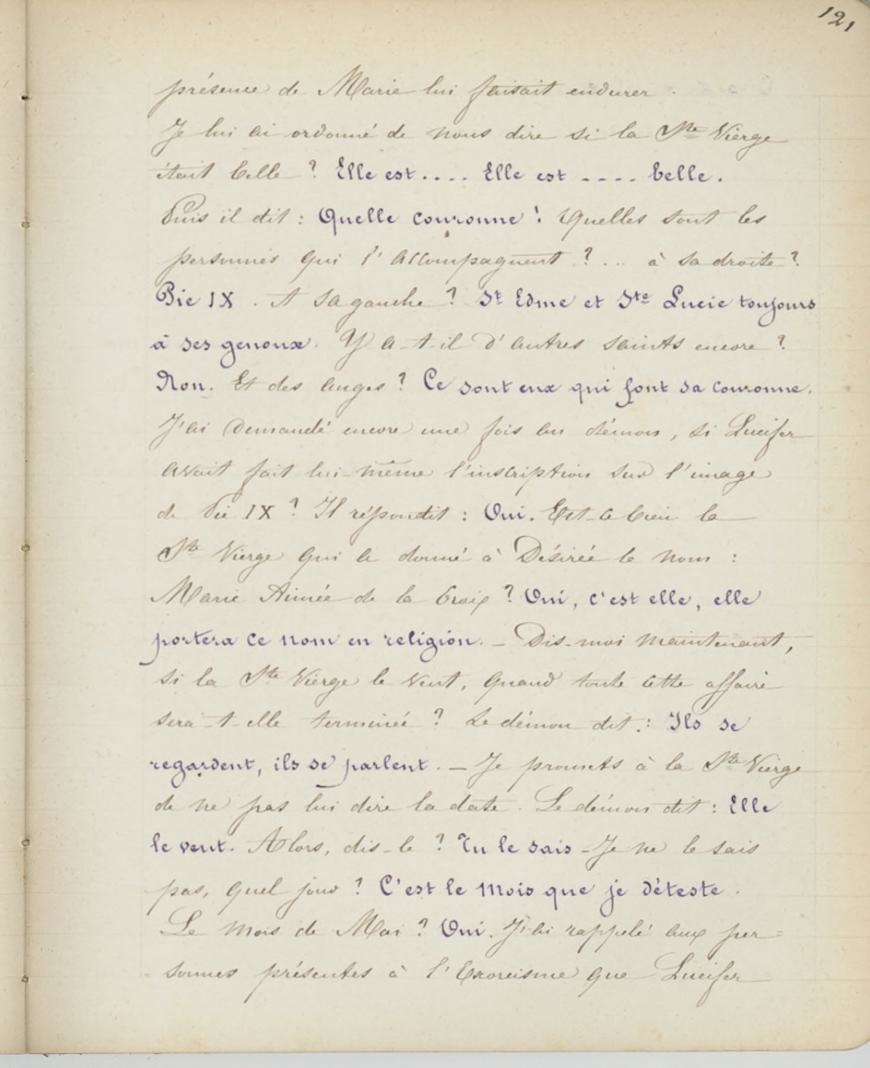 121
présence de Marie lui faisait endurer.
Je lui ai ordonné de nous dire si la Ste Vierge
était belle ? Elle est.... Elle est .... belle.
Puis il dit : Quelle couronne ! Quelles sont les
personnes qui l'accompagnent ? ... à sa droite ?
Pie IX. A sa gauche ? St Edme et Ste Lucie toujours
à ses genoux. Y a-t-il d'autres saints encore ?
Non. Et des anges ? Ce sont eux qui font sa couronne.
J'ai demandé encore une fois au démon, si Lucifer
avait fait lui-même l'inscription sur l'image
de Pie IX ? Il répondit : Oui. Est-ce bien la
Ste Vierge qui a donné à Désirée le nom :
Marie Aimée de la Croix ? Oui, c'est elle, elle
portera ce nom en religion. - Dis-moi maintenant,
si la Ste Vierge le veut, quand toute cette affaire
sera-t-elle terminée ? Le démon dit : Ils se
regardent, ils se parlent. - Je promets à la Ste Vierge
de ne pas lui dire la date. Le démon dit : Elle
le veut. Alors, dis-le ? Tu le sais - Je ne le sais
pas, quel jour ? C'est le mois que je déteste.
Le mois de Mai ? Oui. J'ai rappelé aux per=
sonnes présentes à l'Exorcisme que Lucifer